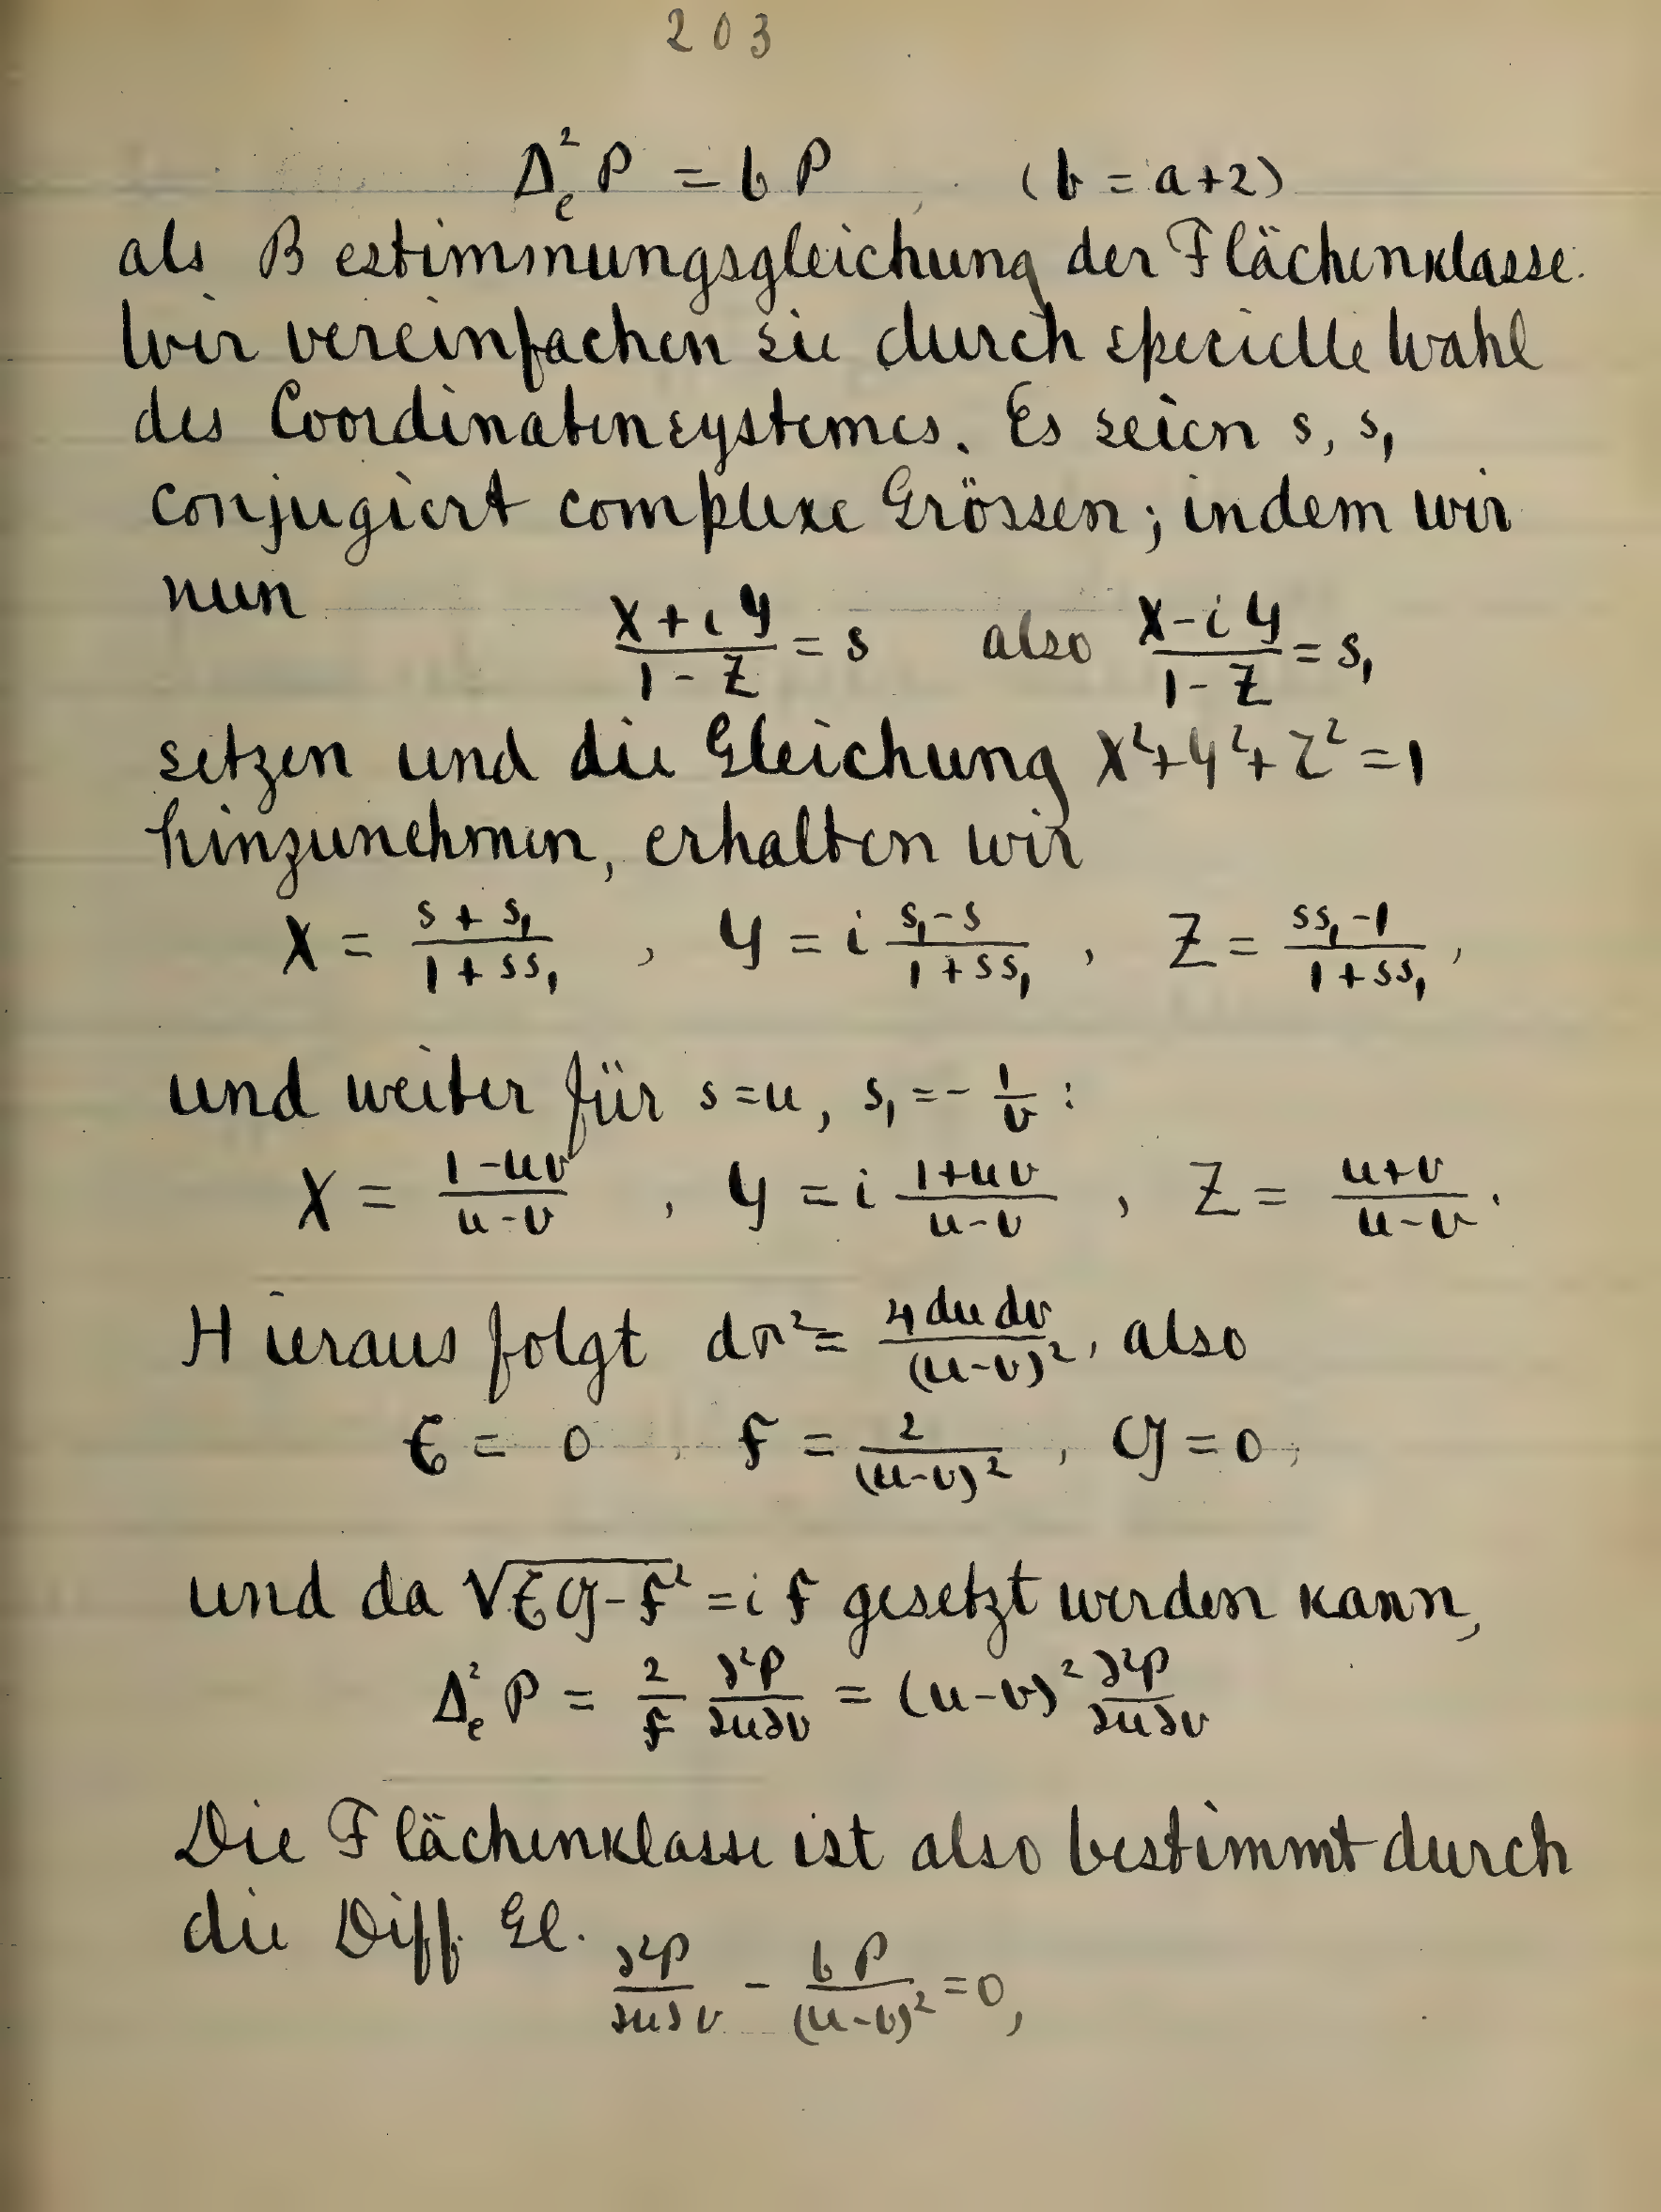 203
Δ²ₑ P = b P, (b = a+2)
als Bestimmungsgleichung der Flächenklasse.
Wir vereinfachen sie durch specielle Wahl
des Coordinatensystemes. Es seien s, s₁
conjugiert complexe Grössen; indem wir
nun (X+iY)/(1-Z) = s also (X-iY)/(1-Z) = s₁
setzen und die Gleichung X²+Y²+Z²=1
hinzunehmen, erhalten wir
X = (s+s₁)/(1+ss₁), Y = i (s₁-s)/(1+ss₁), Z = (ss₁-1)/(1+ss₁),
und weiter für s=u, s₁=-1/v:
X = (1-uv)/(u-v), Y = i (1+uv)/(u-v), Z = (u+v)/(u-v).
Hieraus folgt dσ² = 4dudv/(u-v)², also
E = 0, F = 2/(u-v)², G = 0,
und da √(EG-F²) = iF gesetzt werden kann,
Δ²ₑ P = 2/F ∂²P/∂u∂v = (u-v)² ∂²P/∂u∂v
Die Flächenklasse ist also bestimmt durch
die Diff. Gl. ∂²P/∂u∂v - bP/(u-v)² = 0,